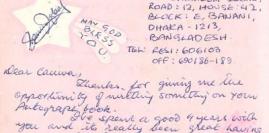 MAY GOD
BLESS
YOU
ROAD: 12, HOUSE: 42,
BLOCK: E, BANANI,
DHAKA - 1213,
BANGLADESH.
TEL: RESI: 606103
OFF: 690186-189
Dear
Thanks for giving me the
opportunity of writing something on your
Autograph book.
I've spent a good 4 years with
you and its really been great having